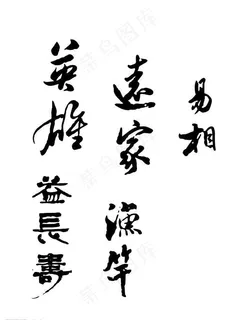 易相
遠家 漁竿
英雄 益長壽